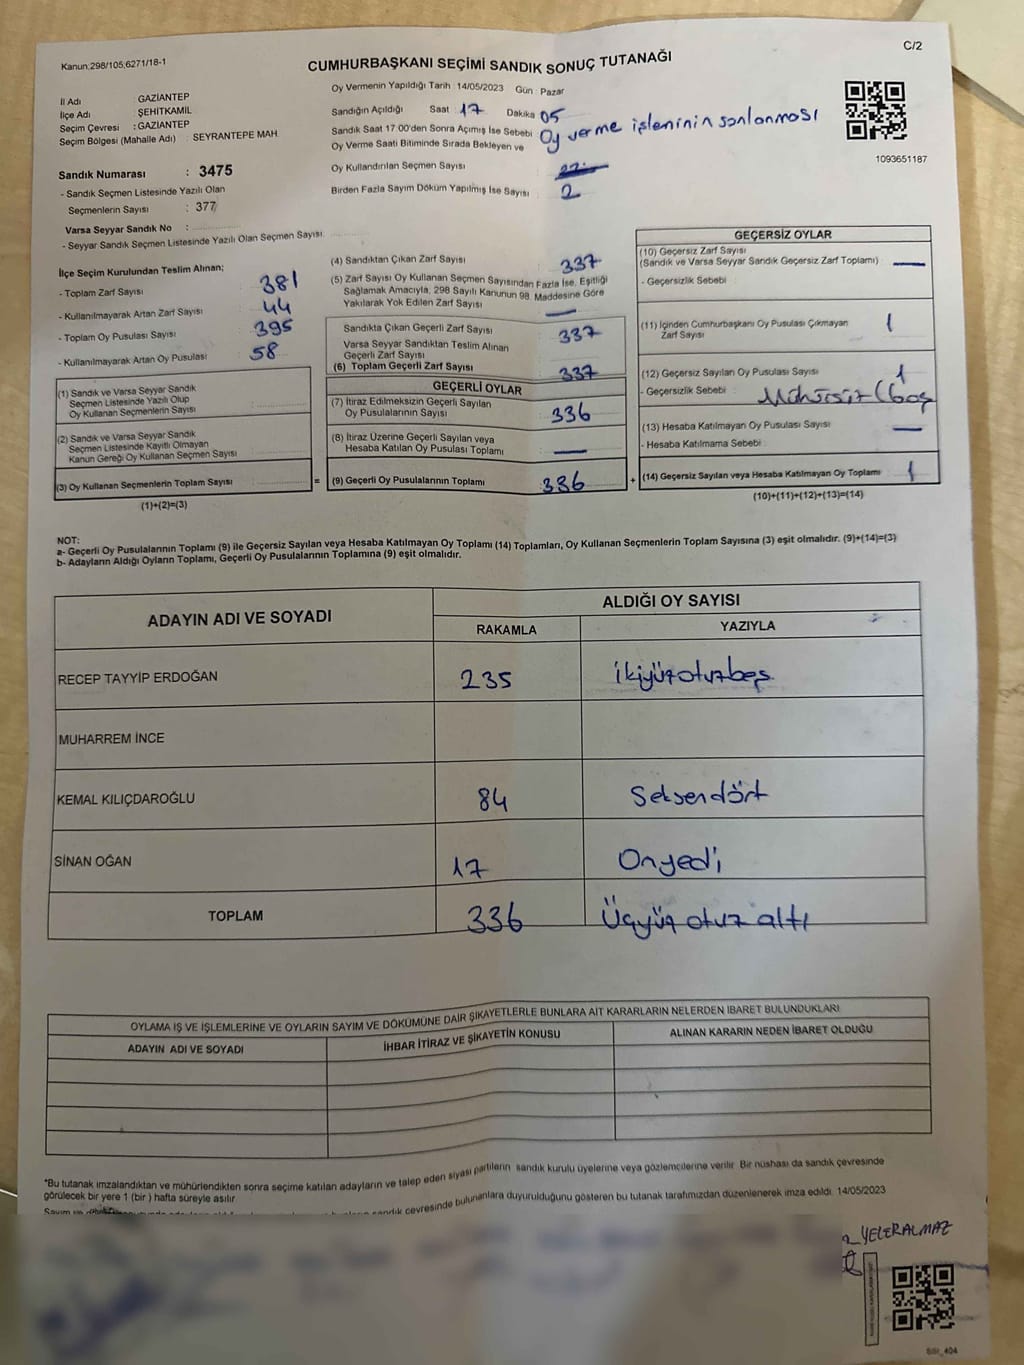 Kanun:298/105;6271/18-1
C/2
CUMHURBAŞKANI SEÇİMİ SANDIK SONUÇ TUTANAĞI
İl Adı GAZİANTEP
İlçe Adı ŞEHİTKAMİL
Seçim Çevresi : GAZİANTEP
Seçim Bölgesi (Mahalle Adı) : SEYRANTEPE MAH.
Oy Vermenin Yapıldığı Tarih : 14/05/2023 Gün : Pazar
Sandığın Açıldığı Saat 17 Dakika 05
Sandık Saat 17:00'den Sonra Açımış İse Sebebi : Oy verme işleminin sonlanması
Oy Verme Saati Bitiminde Sırada Bekleyen ve
Oy Kullandırılan Seçmen Sayısı
Birden Fazla Sayım Döküm Yapılmış İse Sayısı : 2
1093651187
Sandık Numarası : 3475
- Sandık Seçmen Listesinde Yazılı Olan
Seçmenlerin Sayısı : 377
Varsa Seyyar Sandık No :
- Seyyar Sandık Seçmen Listesinde Yazılı Olan Seçmen Sayısı:
İlçe Seçim Kurulundan Teslim Alınan;
- Toplam Zarf Sayısı : 381
- Kullanılmayarak Artan Zarf Sayısı : 44
- Toplam Oy Pusulası Sayısı : 395
- Kullanılmayarak Artan Oy Pusulası : 58
(1) Sandık ve Varsa Seyyar Sandık
Seçmen Listesinde Yazılı Olup
Oy Kullanan Seçmenlerin Sayısı :
(2) Sandık ve Varsa Seyyar Sandık
Seçmen Listesinde Kayıtlı Olmayan
Kanun Gereği Oy Kullanan Seçmen Sayısı :
(3) Oy Kullanan Seçmenlerin Toplam Sayısı :
(1)+(2)=(3)
=
(4) Sandıktan Çıkan Zarf Sayısı : 337
(5) Zarf Sayısı Oy Kullanan Seçmen Sayısından Fazla İse, Eşitliği
Sağlamak Amacıyla, 298 Sayılı Kanunun 98. Maddesine Göre
Yakılarak Yok Edilen Zarf Sayısı : —
Sandıkta Çıkan Geçerli Zarf Sayısı : 337
Varsa Seyyar Sandıktan Teslim Alınan
Geçerli Zarf Sayısı
(6) Toplam Geçerli Zarf Sayısı : 337
GEÇERLİ OYLAR
(7) İtiraz Edilmeksizin Geçerli Sayılan
Oy Pusulalarının Sayısı : 336
(8) İtiraz Üzerine Geçerli Sayılan veya
Hesaba Katılan Oy Pusulası Toplamı : —
(9) Geçerli Oy Pusulalarının Toplamı : 336
+
GEÇERSİZ OYLAR
(10) Geçersiz Zarf Sayısı
(Sandık ve Varsa Seyyar Sandık Geçersiz Zarf Toplamı) : —
- Geçersizlik Sebebi :
(11) İçinden Cumhurbaşkanı Oy Pusulası Çıkmayan
Zarf Sayısı : 1
(12) Geçersiz Sayılan Oy Pusulası Sayısı : 1
- Geçersizlik Sebebi : Mühürsüz (boş
(13) Hesaba Katılmayan Oy Pusulası Sayısı : —
- Hesaba Katılmama Sebebi :
(14) Geçersiz Sayılan veya Hesaba Katılmayan Oy Toplamı : 1
(10)+(11)+(12)+(13)=(14)
NOT:
a- Geçerli Oy Pusulalarının Toplamı (9) ile Geçersiz Sayılan veya Hesaba Katılmayan Oy Toplamı (14) Toplamları, Oy Kullanan Seçmenlerin Toplam Sayısına (3) eşit olmalıdır. (9)+(14)=(3)
b- Adayların Aldığı Oyların Toplamı, Geçerli Oy Pusulalarının Toplamına (9) eşit olmalıdır.
ADAYIN ADI VE SOYADI
ALDIĞI OY SAYISI
RAKAMLA YAZIYLA
RECEP TAYYİP ERDOĞAN 235 ikiyüzotuzbeş
MUHARREM İNCE
KEMAL KILIÇDAROĞLU 84 Seksendört
SİNAN OĞAN 17 Onyedi
TOPLAM 336 Üçyüz otuz altı
OYLAMA İŞ VE İŞLEMLERİNE VE OYLARIN SAYIM VE DÖKÜMÜNE DAİR ŞİKAYETLERLE BUNLARA AİT KARARLARIN NELERDEN İBARET BULUNDUKLARI
ADAYIN ADI VE SOYADI İHBAR İTİRAZ VE ŞİKAYETİN KONUSU ALINAN KARARIN NEDEN İBARET OLDUĞU
*Bu tutanak imzalandıktan ve mühürlendikten sonra seçime katılan adayların ve talep eden siyasi partilerin sandık kurulu üyelerine veya gözlemcilerine verilir. Bir nüshası da sandık çevresinde
görülecek bir yere 1 (bir) hafta süreyle asılır.
Sayım ve sandık çevresinde bulunanlara duyurulduğunu gösteren bu tutanak tarafımızdan düzenlenerek imza edildi. 14/05/2023
YELERALMAZ